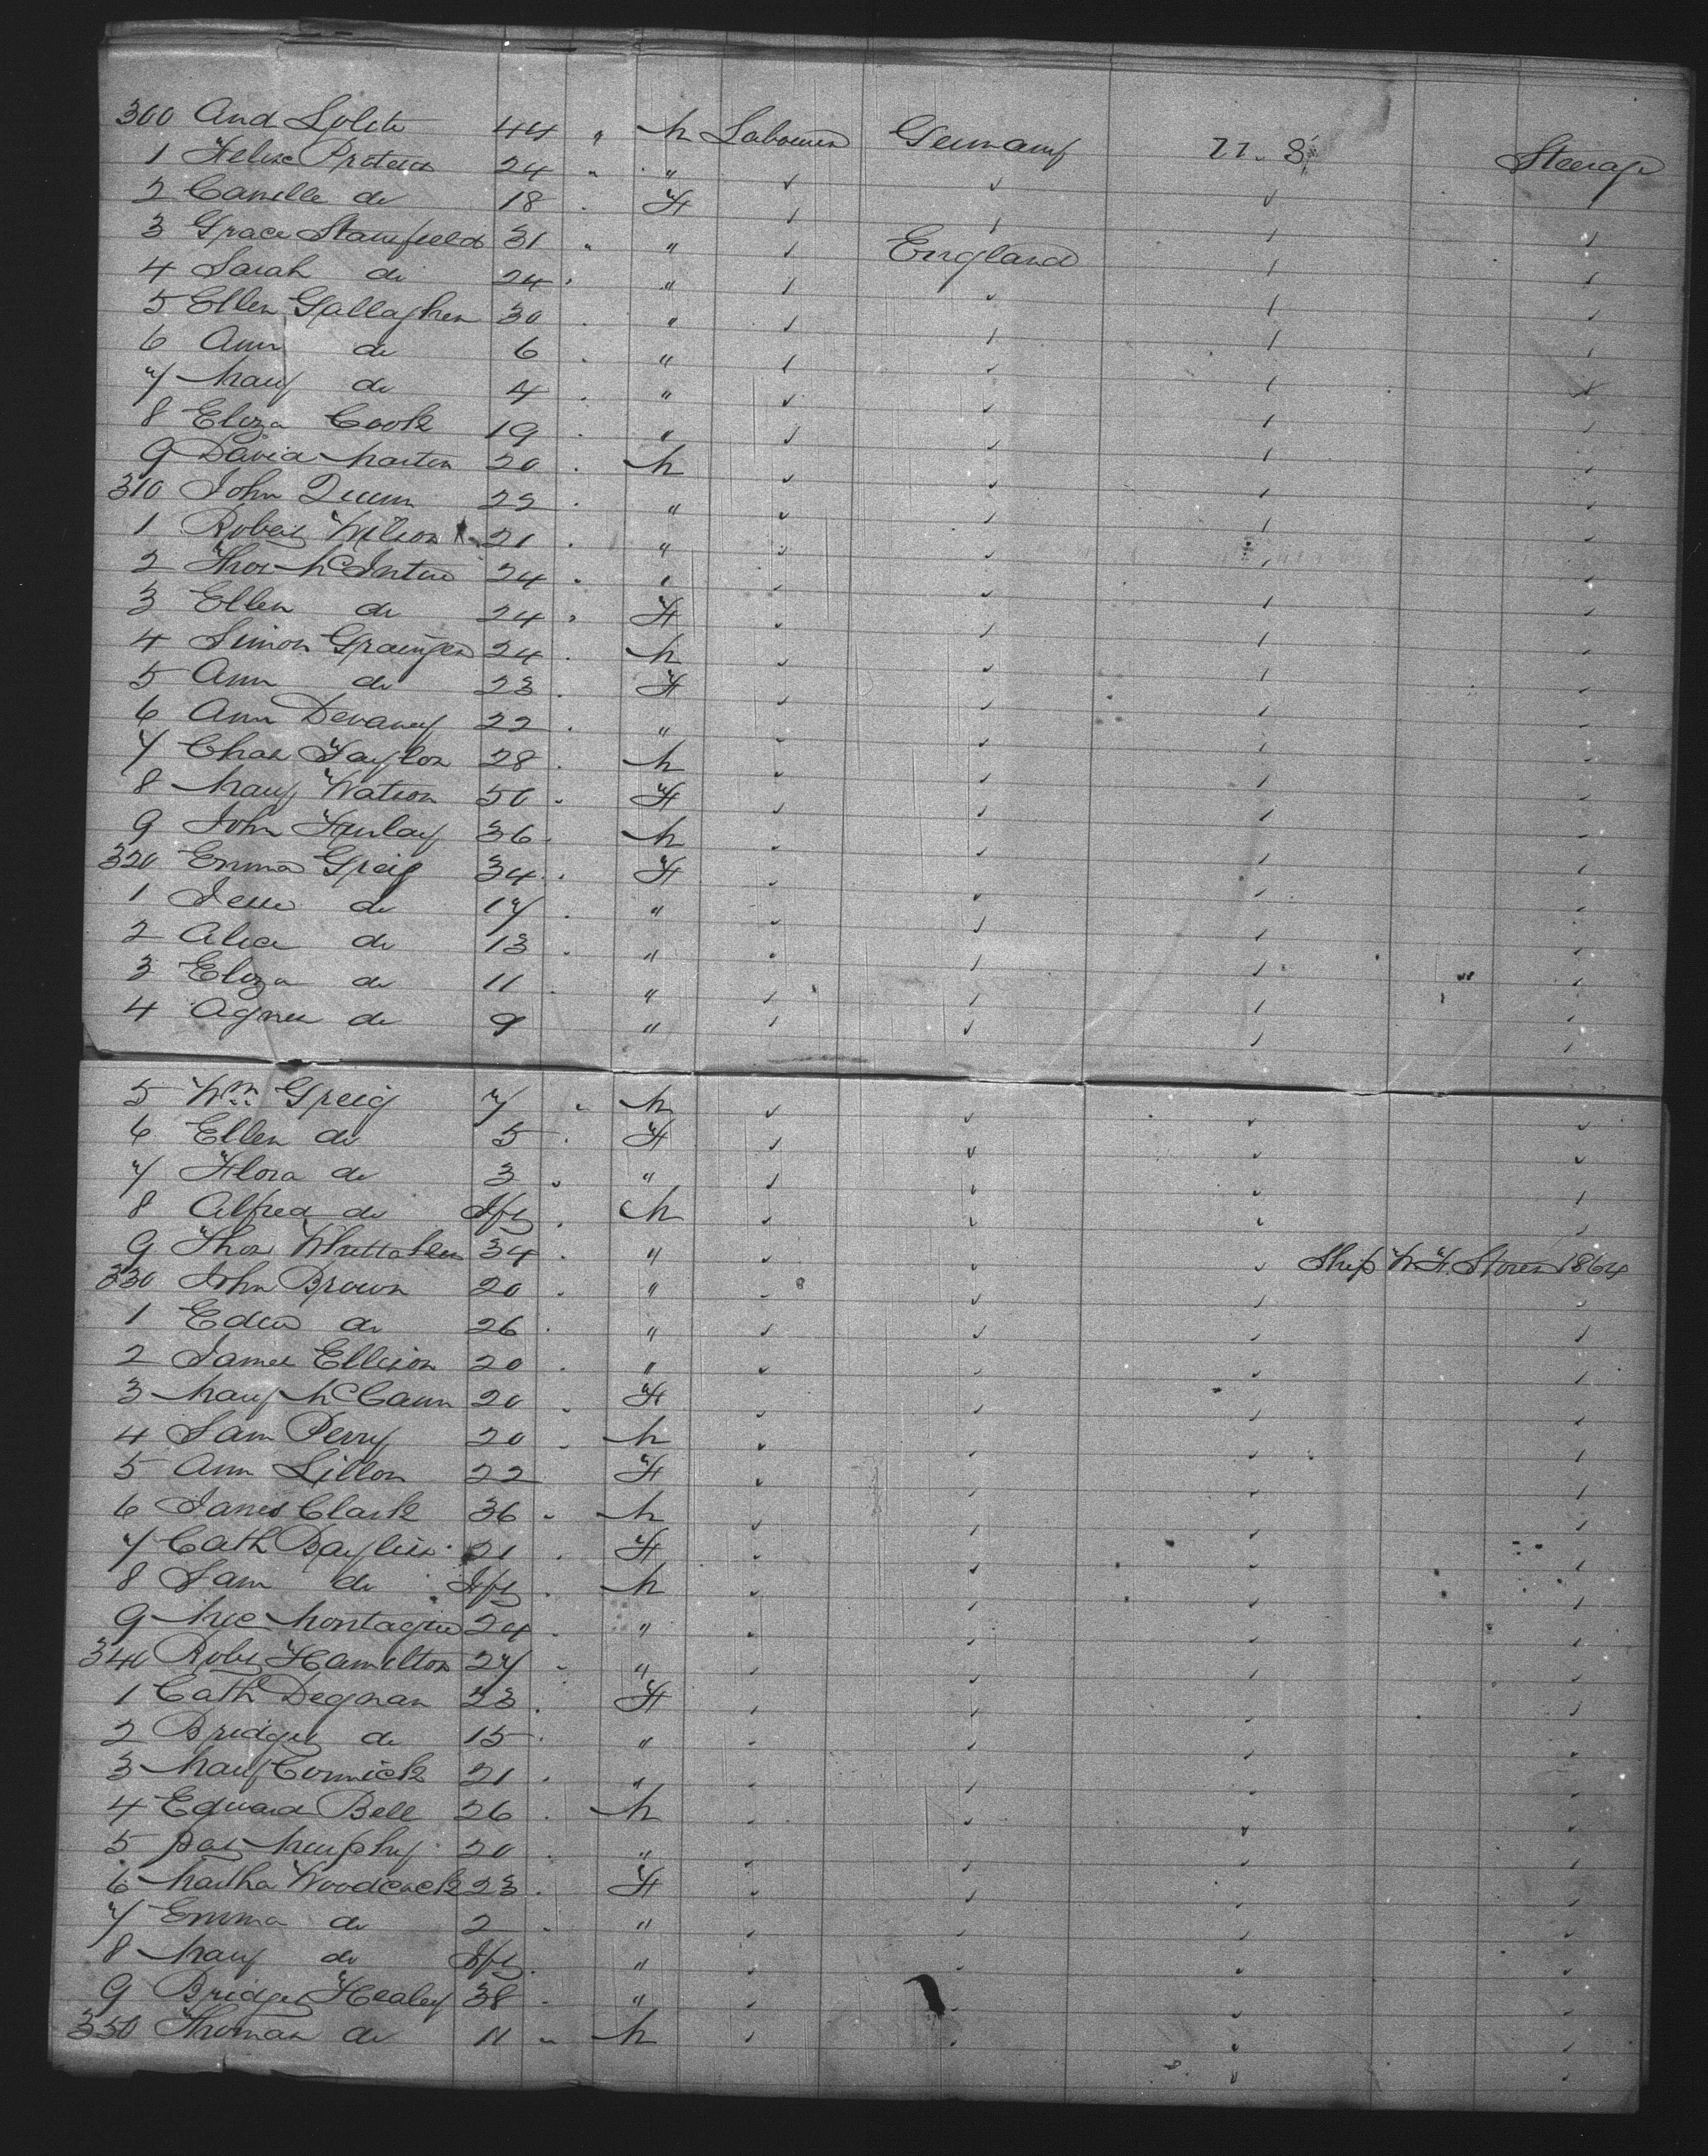 300 And 44 " M Labourer Germany U.S. Steerage
1 Felise 24 " "
2 Camille do 18 F
3 Grace Stansfield 31 " " England
4 Sarah do 24 "
5 Ellen Gallagher 30 "
6 Ann do 6 "
7 Mary do 4 "
8 Eliza Cook 19 "
9 David Martin 20 M
310 John Quinn 22 "
1 Robert Wilson 21 "
2 Thos McIntire 24 "
3 Ellen do 24 F
4 Simon Grainger 24 M
5 Ann do 23 F
6 Ann Devaney 22 "
7 Chas Taylor 28 M
8 Mary Watson 50 F
9 John Finlay 36 M
320 Emma Greig 34 F
1 Jessie do 17 "
2 Alice do 13 "
3 Eliza do 11 "
4 Agnes do 9 "
5 Wm Greig 7 " M
6 Ellen do 5 F
7 Flora do 3 "
8 Alfred do Inft M
9 Thos Whittaker 34 " Ship W. F. Storer 1864
330 John Brown 20 "
1 Edwd do 26 "
2 James Ellison 20 "
3 Mary McCann 20 F
4 Sam Perry 20 M
5 Ann Lillon 22 F
6 James Clark 36 M
7 Cath Bayliss 21 F
8 Sam do Inft M
9 Mic Montague 24 "
340 Robt Hamilton 27 "
1 Cath Degnan 23 F
2 Bridget do 15 "
3 Mary Cormick 21 "
4 Edward Bell 26 M
5 Pat Murphy 20 "
6 Martha Woodcock 23 F
7 Emma do 2 "
8 Mary do Inft "
9 Bridget Healey 38 "
350 Thomas do 11 M